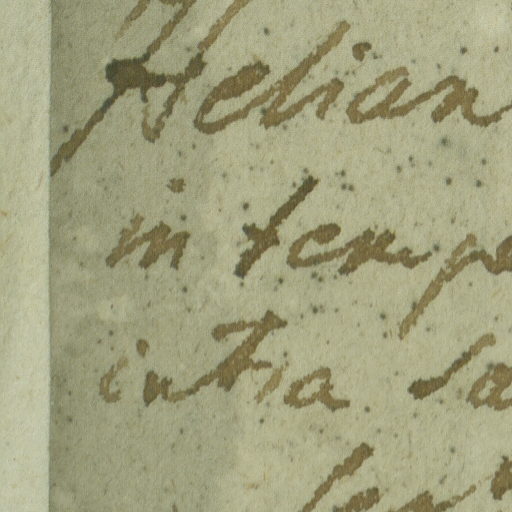 Helian
in temp
intra sa